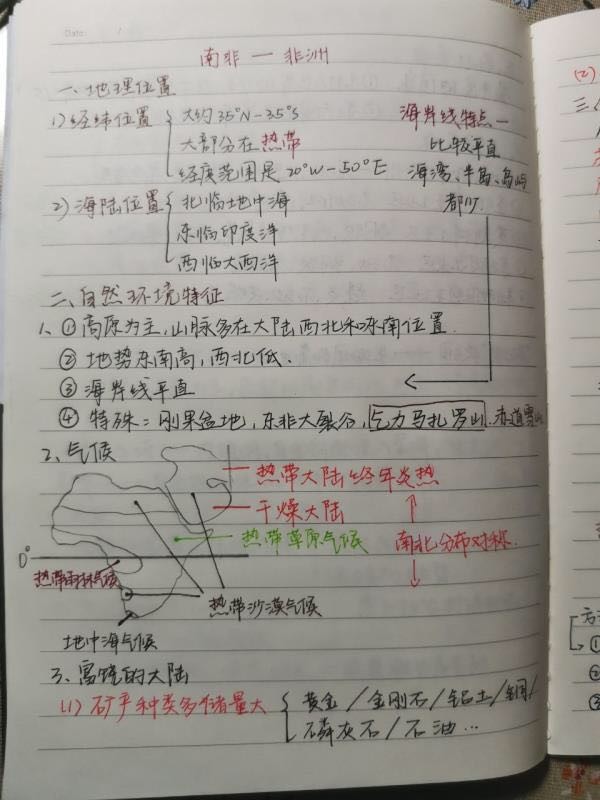 Date: /
南非 — 非洲
一、地理位置
1) 经纬位置 { 大约35°N-35°S
大部分在热带
经度范围是20°W-50°E
海岸线特点—
比较平直
海湾、半岛、岛屿
都少.
2) 海陆位置 { 北临地中海
东临印度洋
西临大西洋
二、自然环境特征
1、① 高原为主,山脉多在大陆西北和东南位置.
② 地势东南高,西北低、
③ 海岸线平直
④ 特殊:刚果盆地,东非大裂谷,乞力马扎罗山.赤道雪山
2、气候
热带大陆 终年炎热
干燥大陆
热带草原气候
南北分布对称.
0°
热带雨林气候
热带沙漠气候
地中海气候
3、富饶的大陆
(1) 矿产种类多储量大 { 黄金/金刚石/铝土/铜/
磷灰石/石油...
(2)
三、
①
②
③